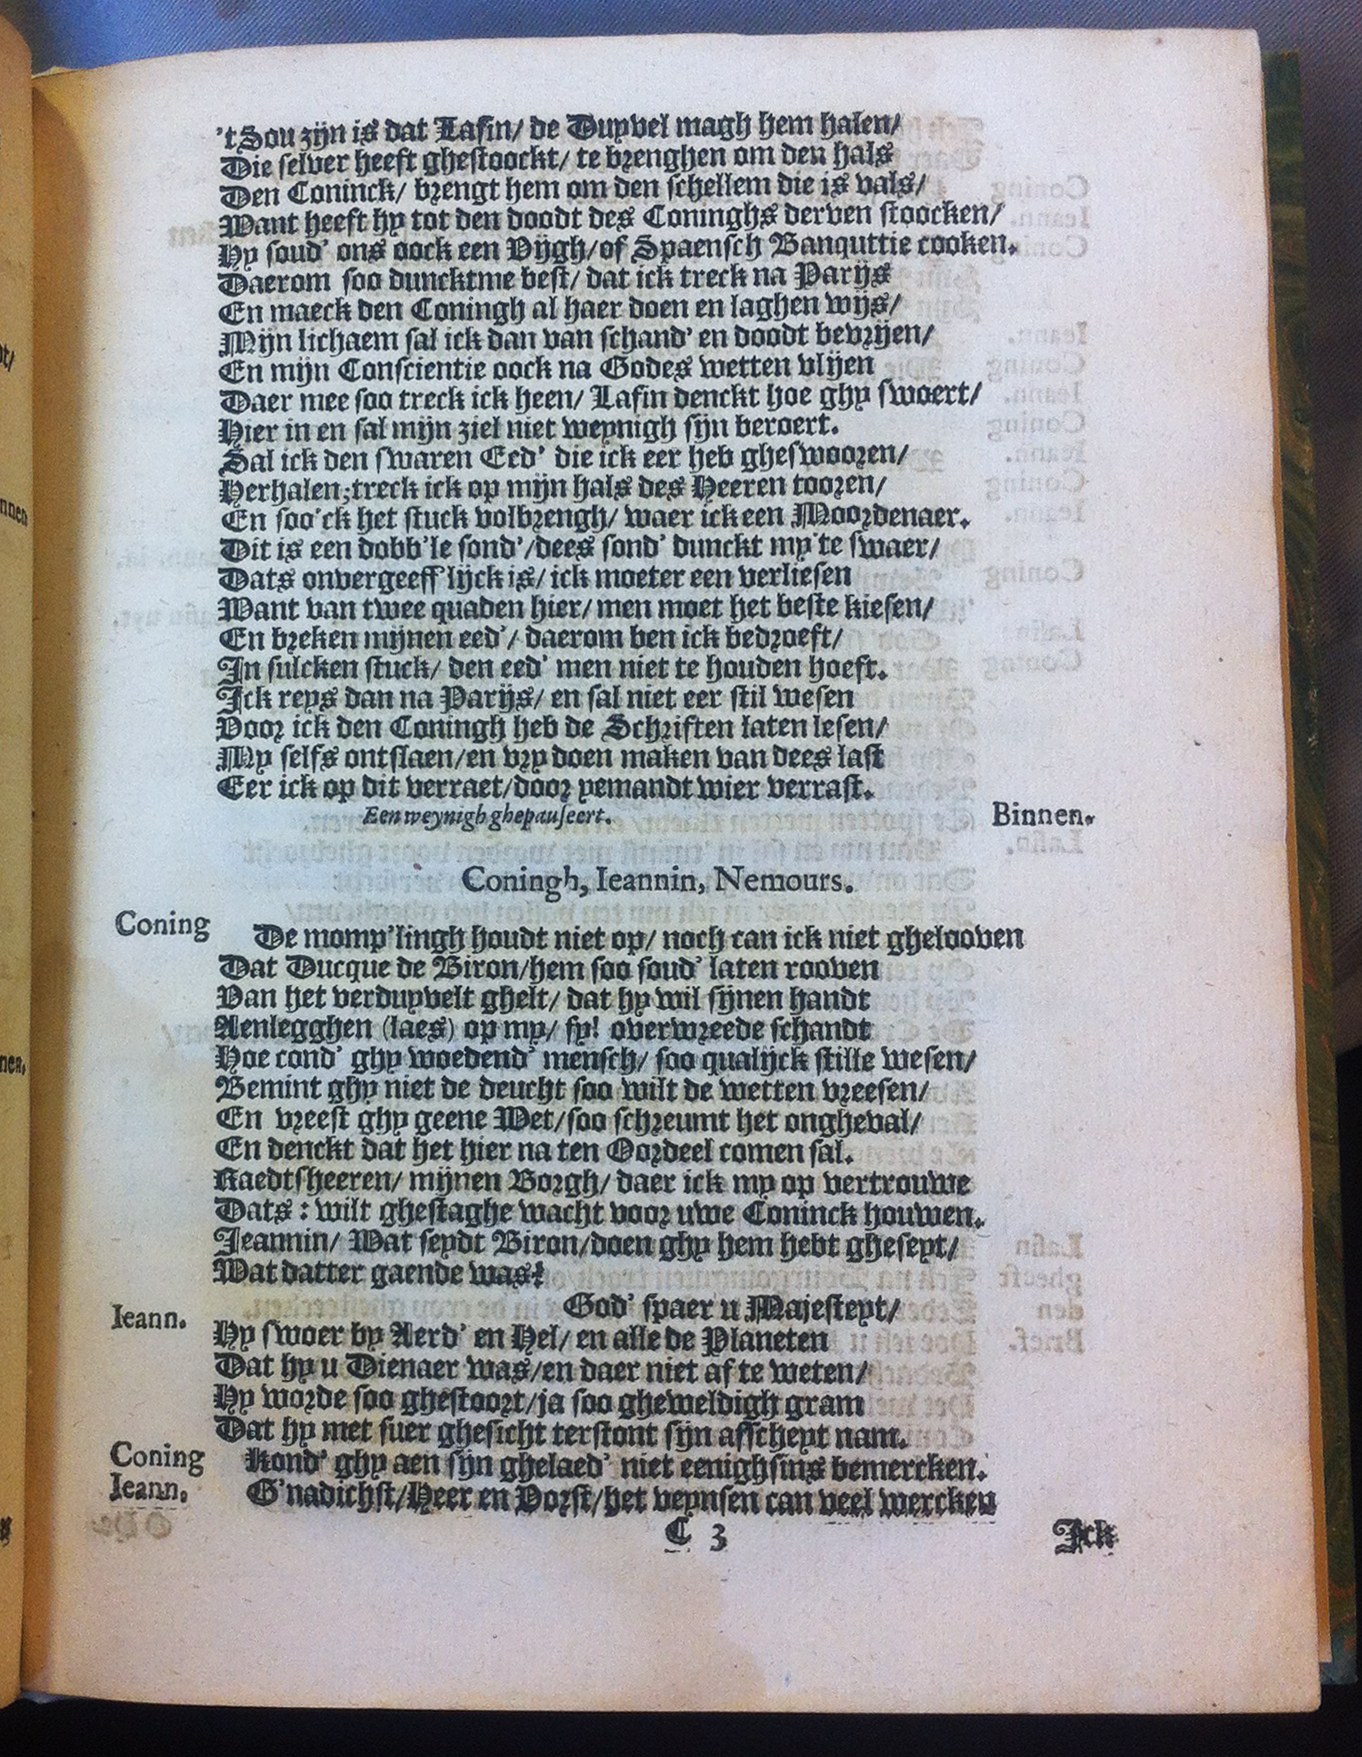 't Sou zijn is dat Lafin/ de Duyvel magh hem halen/
Die selver heeft ghestoockt/ te brenghen om den hals
Den Coninck/ brengt hem om den schellem die is vals/
Want heeft hy tot den doodt des Coninghs derven stoocken/
Hy soud' ons oock een Vijgh/of Spaensch Banquttie cooken.
Daerom soo duncktme best/ dat ick treck na Parijs
En maeck den Coningh al haer doen en laghen wijs/
Mijn lichaem sal ick dan van schand' en doodt bevrijen/
En mijn Conscientie oock na Godes wetten vlijen
Daer mee soo treck ick heen/ Lafin denckt hoe ghy swoert/
Hier in en sal mijn ziel niet weynigh sijn beroert.
Sal ick den swaren Eed' die ick eer heb gheswooren/
Herhalen;treck ick op mijn hals des Heeren tooren/
En soo'ck het stuck volbrengh/ waer ick een Moordenaer.
Dit is een dobb'le sond'/dees sond' dunckt my te swaer/
Dats onvergeeff'lijck is/ ick moeter een verliesen
Want van twee quaden hier/ men moet het beste kiesen/
En breken mijnen eed'/ daerom ben ick bedroeft/
In sulcken stuck/ den eed' men niet te houden hoeft.
Ick reys dan na Parijs/ en sal niet eer stil wesen
Voor ick den Coningh heb de Schriften laten lesen/
My selfs ontslaen/en vry doen maken van dees last
Eer ick op dit verraet/door yemandt wier verrast.
Een weynigh ghepauseert. Binnen.
Coningh, Ieannin, Nemours.
Coning De momp'lingh houdt niet op/ noch can ick niet ghelooven
Dat Ducque de Biron/hem soo soud' laten rooven
Van het verduyvelt ghelt/ dat hy wil sijnen handt
Aenlegghen (laes) op my/ fy! overwreede schandt
Hoe cond' ghy woedend' mensch/ soo qualijck stille wesen/
Bemint ghy niet de deucht soo wilt de wetten vreesen/
En vreest ghy geene Wet/soo schreumt het ongheval/
En denckt dat het hier na ten Oordeel comen sal.
Raedtsheeren/ mijnen Borgh/ daer ick my op vertrouwe
Dats : wilt ghestaghe wacht voor uwe Coninck houwen.
Jeannin/ Wat seydt Biron/doen ghy hem hebt gheseyt/
Wat datter gaende was?
Ieann. God' spaer u Majesteyt/
Hy swoer by Aerd' en Hel/ en alle de Planeten
Dat hy u Dienaer was/en daer niet af te weten/
Hy worde soo ghestoort/ja soo gheweldigh gram
Dat hy met suer ghesicht terstont sijn afscheyt nam.
Coning Kond' ghy aen sijn ghelaed' niet eenighsins bemercken.
Ieann. G'nadichst/Heer en Vorst/het veynsen can veel wercken
C 3 Ick